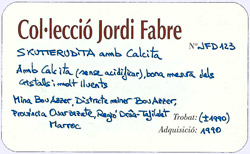 Col·lecció Jordi Fabre
SKUTTERUDITA amb Calcita
NºJFD123
Amb Calcita (sense acidificar), bona mesura dels
cristalls i molt lluents
Mina Bou Azzer, Districte miner Bou Azzer,
Província Ouarzazate, Regió Drâa-Tafilalet
Marroc
Trobat: (±1990)
Adquisició: 1990